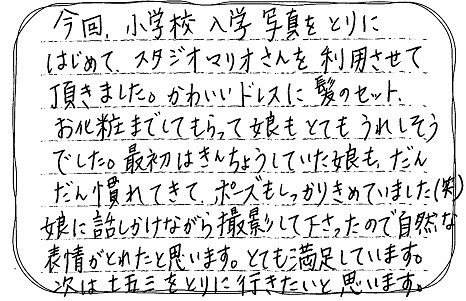 今回、小学校 入学 写真をとりに
はじめて、スタジオマリオさんを 利用させて
頂きました。かわいいドレスに 髪のセット、
お化粧までしてもらって娘も とても うれしそう
でした。最初は きんちょうしていた娘も、だん
だん慣れてきて、ポーズもしっかりきめていました(笑)
娘に話しかけながら撮影して下さったので自然な
表情がとれたと思います。とても満足しています。
次は 七五三をとりに行きたいと思います。